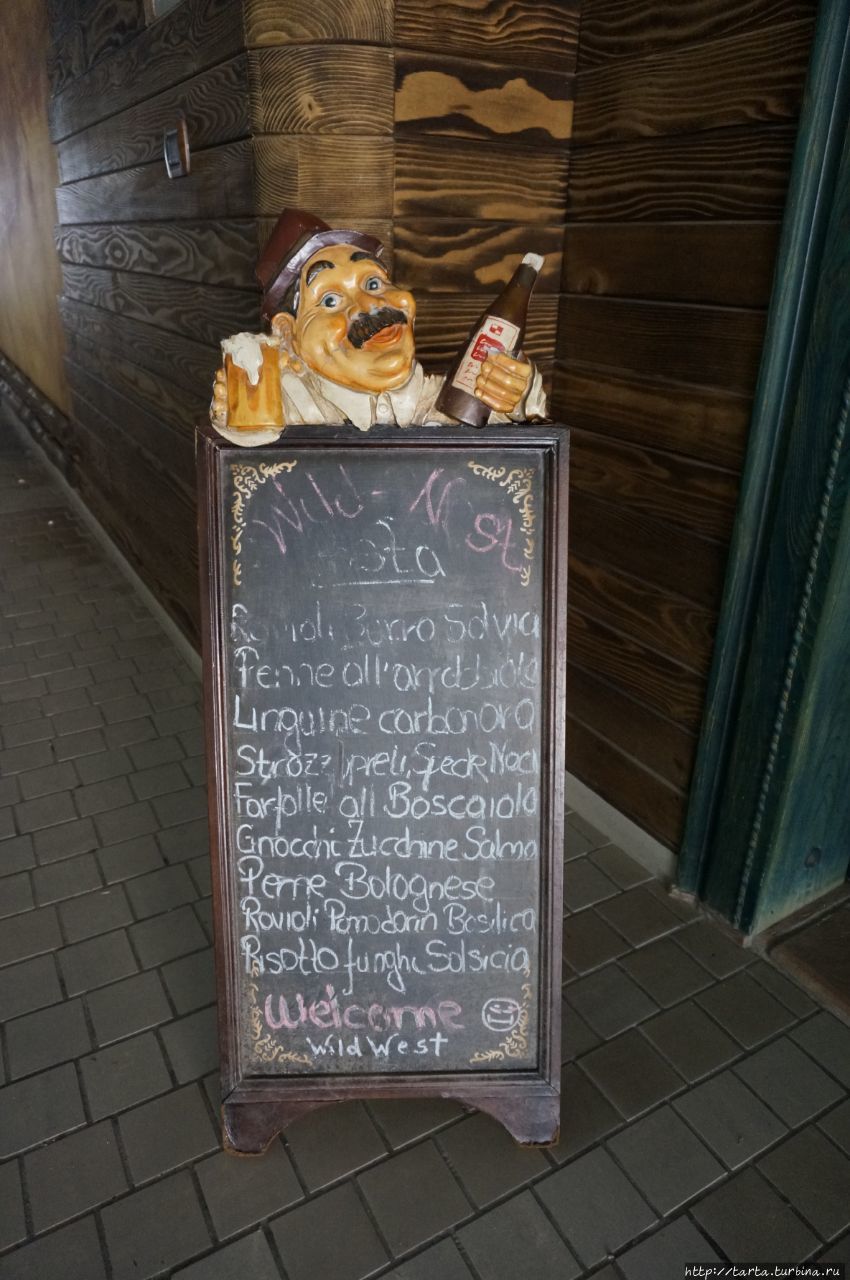 Wild - West
Pasta
Ravioli Burro Salvia
Penne all'arrabbiata
Linguine carbonara
Strozzipreti, Speck Noci
Farfalle all Boscaiola
Gnocchi Zucchine Salmo
Penne Bolognese
Ravioli Pomodorin Basilico
Risotto funghi Salsicia
Welcome
Wild West
http://tarta.turbina.ru